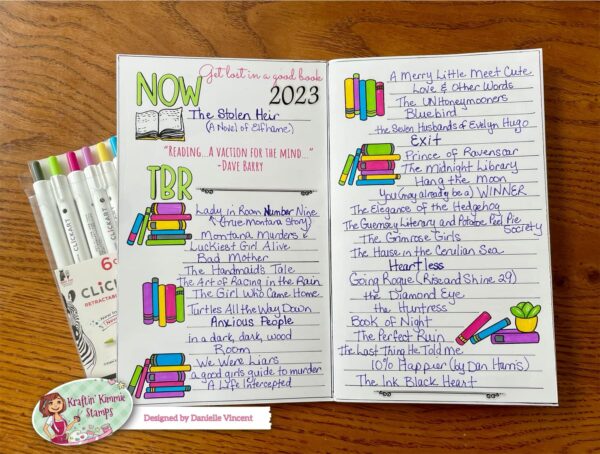 NOW
Get lost in a good book
2023
The Stolen Heir
(A Novel of Elfhame)
"READING...A VACTION FOR THE MIND..."
-DAVE BARRY
TBR
Lady in Room Number Nine
(true Montana Story)
Montana Murders
Luckiest Girl Alive
Bad Mother
The Handmaids Tale
The Art of Racing in the Rain
The Girl Who Came Home
Turtles All the Way Down
Anxious People
in a dark, dark, wood
Room
We Were Liars
a good girls guide to murder
A Life Intercepted
A Merry Little Meet Cute
Love & Other Words
The UNHoneymooners
Bluebird
the Seven Husbands of Evelyn Hugo
Exit
Prince of Ravenscar
The Midnight Library
Hang the Moon
You (may already be a) WINNER
The Elegance of the Hedgehog
The Guernsey Literary and Potatoe Peel Pie
Society
The Grimrose Girls
The House in the Cerulian Sea
Heartless
Going Rogue (Rise and Shine 29)
the Diamond Eye
the Huntress
Book of Night
The Perfect Ruin
The Last Thing He Told Me
10% Happier (by Dan Harris)
The Ink Black Heart
CLICKART
CLICKART
CLiCK
RETRACTABL
Kraftin' Kimmie
Stamps
Designed by Danielle Vincent